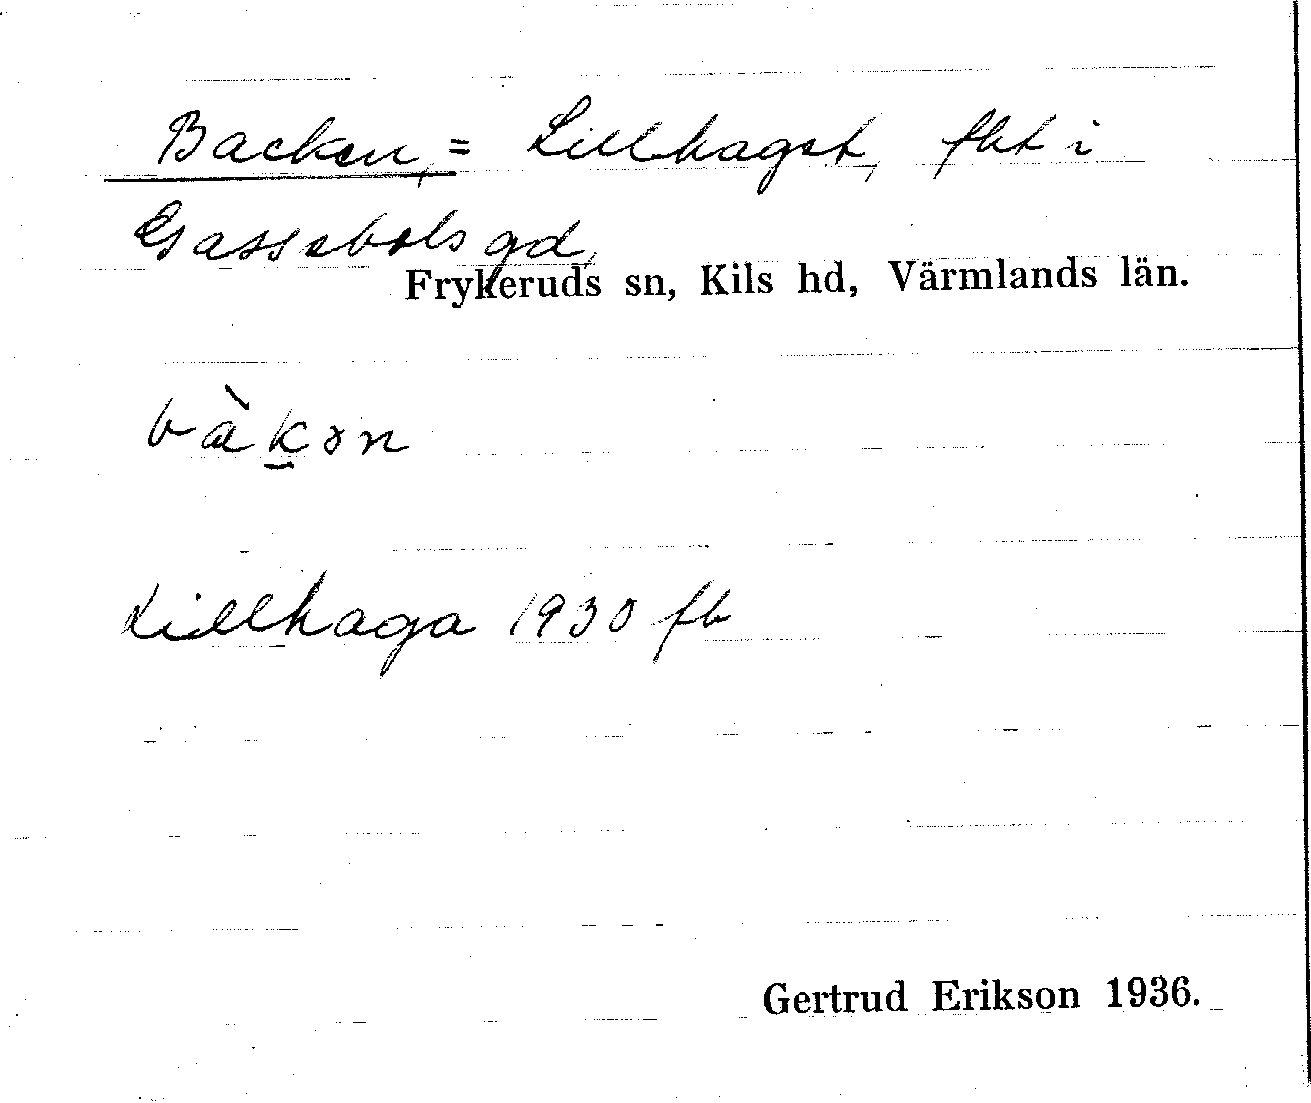 Backen, = Lillhaget, fht i
Gassebols gd,
Frykeruds sn, Kils hd, Värmlands län.
bàkən
Lillhaga 1930 fb
Gertrud Erikson 1936.